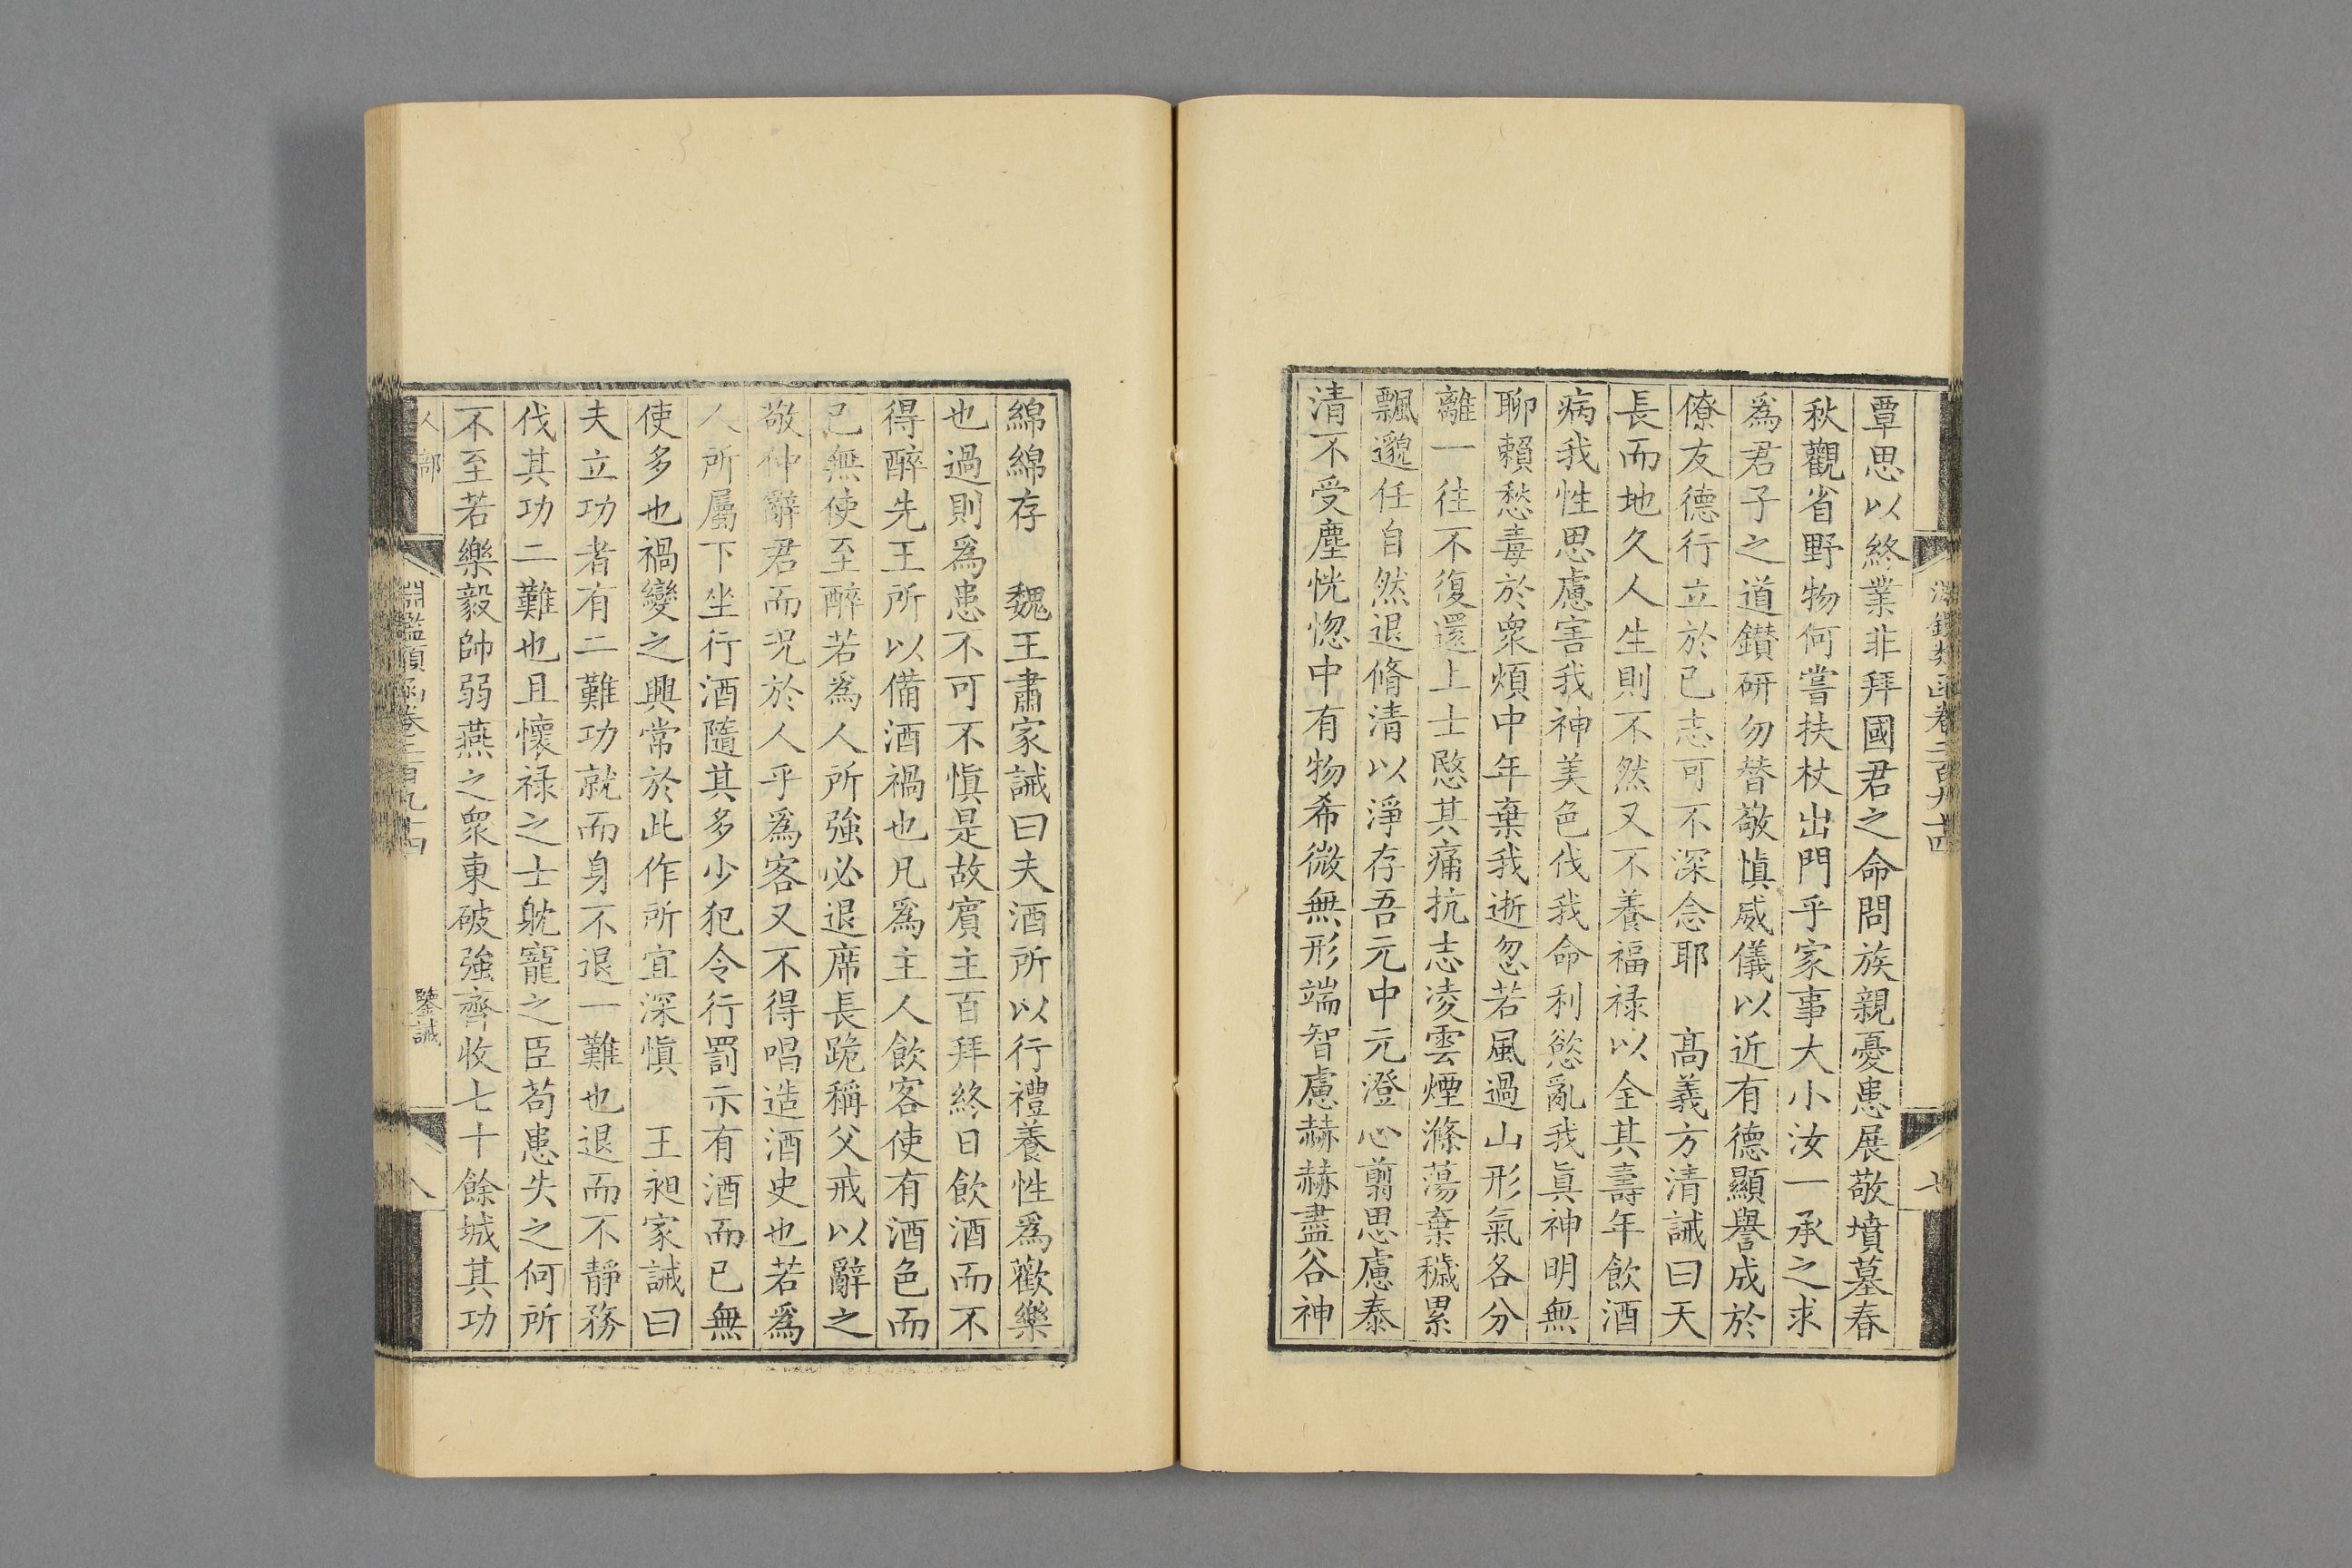 覃思以終業非拜國君之命問族親憂患展敬墳墓春
秋觀省野物何嘗扶杖出門乎家事大小汝一承之求
爲君子之道鑽研勿替敬慎威儀以近有德顯譽成於
僚友德行立於已志可不深念耶　髙義方清誡曰天
長而地久人生則不然又不養福禄以全其壽年飲酒
病我性思慮害我神美色伐我命利慾亂我眞神明無
聊賴愁毒於衆煩中年棄我逝忽若風過山形氣各分
離一往不復還上士愍其痛抗志凌雲煙滌蕩棄穢累
飄邈任自然退脩清以淨存吾元中元澄心翦思慮泰
清不受塵恍惚中有物希微無形端智慮赫赫盡谷神
七
綿綿存　魏王肅家誡曰夫酒所以行禮養性爲歡樂
也過則爲患不可不慎是故賓主百拜終日飲酒而不
得醉先王所以備酒禍也凡爲主人飲客使有酒色而
已無使至醉若爲人所強必退席長跪稱父戒以辭之
敬仲辭君而況於人乎爲客又不得唱造酒史也若爲
人所屬下坐行酒隨其多少犯令行罰示有酒而已無
使多也禍變之興常於此作所宜深慎　王昶家誡曰
夫立功者有二難功就而身不退一難也退而不靜務
伐其功二難也且懷禄之士躭寵之臣苟患失之何所
不至若樂毅帥弱燕之衆東破強齊收七十餘城其功
人部
淵鑑類函卷二百九十四
鑒誡
八